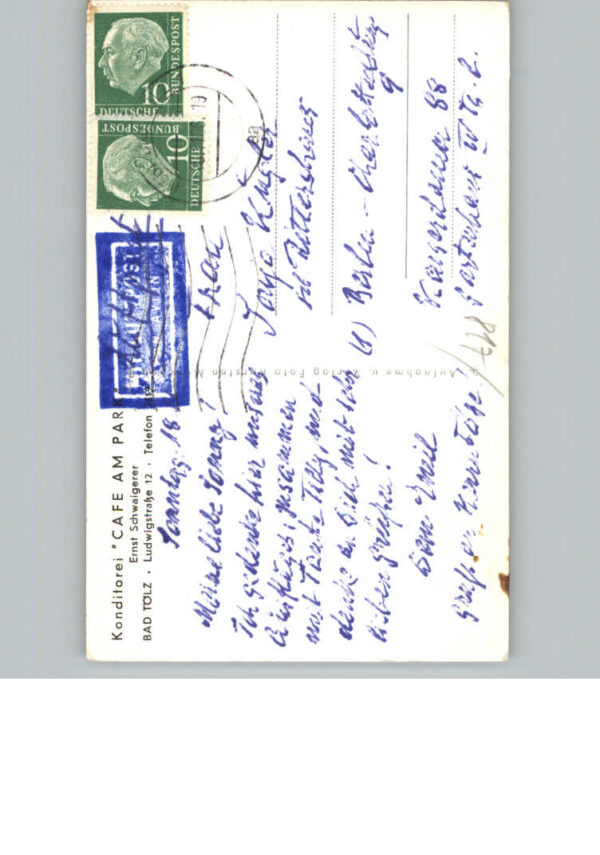 Konditorei "CAFE AM PARK"
Ernst Schwaigerer
BAD TÖLZ · Ludwigstraße 12 · Telefon
Sonntag, 18.
Meine liebe Sonny!
Ich gedenke hier unseres
Ausfluges, zusammen
mit Tante Tilly, und
denke an Dich mit sehr
lieben Grüßen!
Dein Emil
Grüße an
10
DEUTSCHE
BUNDESPOST
10
DEUTSCHE
BUNDESPOST
Luftpost
LUFTPOST
PAR AVION
Frau
Sonja
bei
(1) Berlin - Charlottenburg
9
Kaiserdamm 88
Gartenhaus
Aufnahme u. Verlag Foto